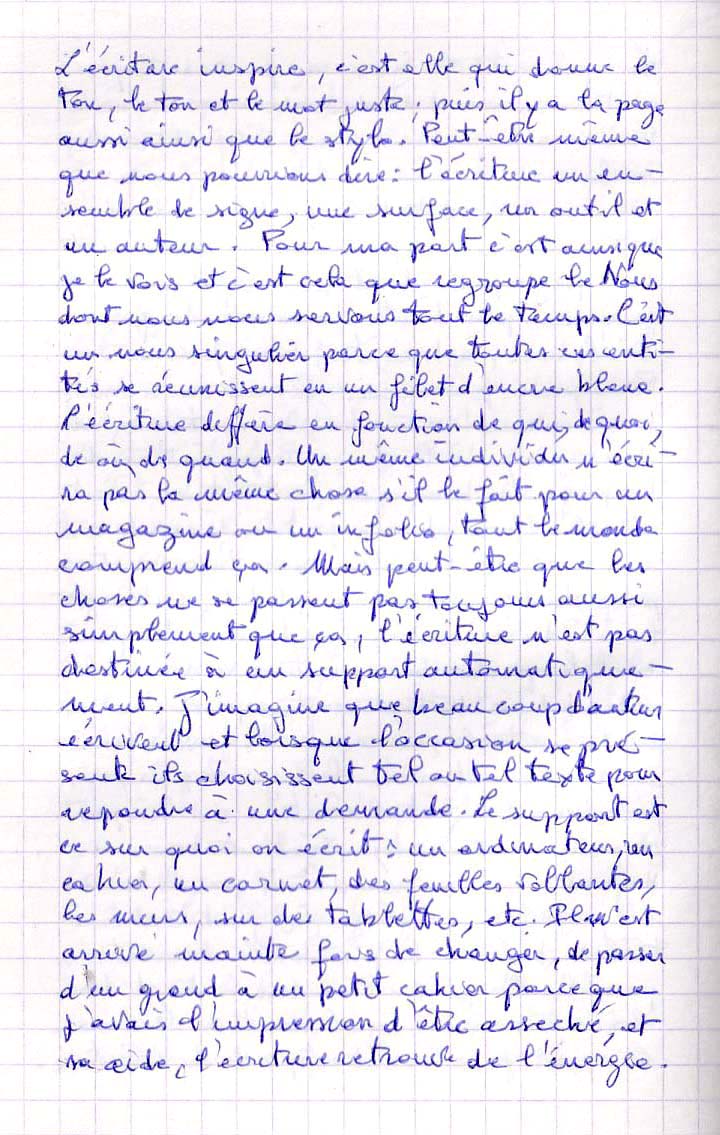 L'écriture inspire, c'est elle qui donne le
ton, le ton et le mot juste ; puis il y a la page
aussi ainsi que le stylo. Peut-être même
que nous pourrions dire : l'écriture un en-
semble de signe, une surface, un outil et
un auteur. Pour ma part c'est ainsi que
je le vois et c'est cela que regroupe le Nous
dont nous nous servons tout le temps. C'est
un nous singulier parce que toutes ces enti-
tés se réunissent en un filet d'encre bleue.
L'écriture diffère en fonction de qui, de quoi,
de où, de quand. Un même individu n'écri-
ra pas la même chose s'il le fait pour un
magazine ou un infolio, tout le monde
comprend ça. Mais peut-être que les
choses ne se passent pas toujours aussi
simplement que ça, l'écriture n'est pas
destinée à un support automatique-
ment. J'imagine que beaucoup d'auteur
écrivent et lorsque l'occasion se pré-
sente ils choisissent tel ou tel texte pour
repondre à une demande. Le support est
ce sur quoi on écrit : un ordinateur, un
cahier, un carnet, des feuilles vollantes,
les murs, sur des tablettes, etc. Il m'est
arrivé mainte fois de changer, de passer
d'un grand à un petit cahier parce que
j'avais l'impression d'être asseché, et
ça aide, l'écriture retrouve de l'énergie.